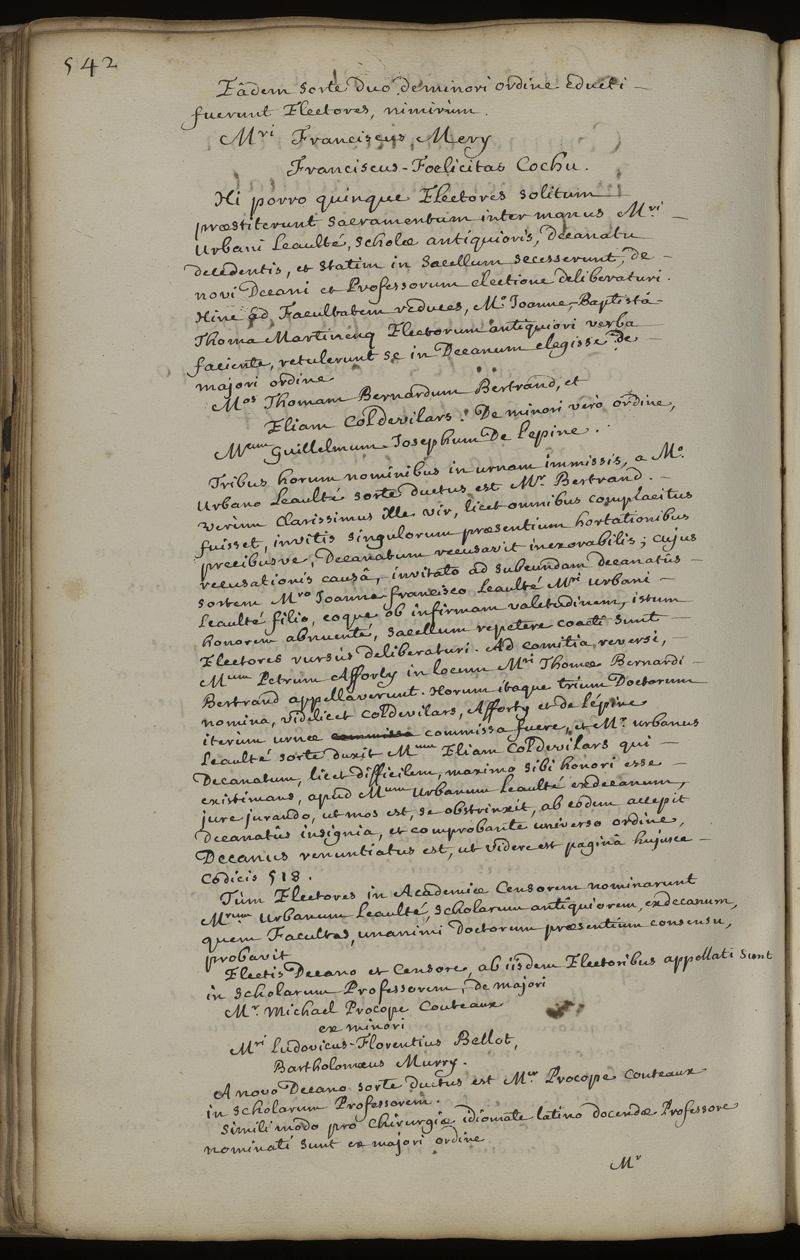 542
Eâdem sorte duo de minori ordine educti —
fuerunt Electores, nimirùm.
Mri Franciscus Mery
Franciscus-Foelicitas Cochu.
Hi porro quinque Electores solitum
præstiterunt sacramentum inter manus Mri —
Urbani Leaulté, scholæ antiquioris, decanatu
decedentis, et statim in sacellum secesserunt, de —
novi Decani et Professorum electione deliberaturi.
Hinc ad Facultatem reduces, Mo Joanne-Baptistâ
Thoma Martinenq Electorum antiquiori verba
faciente, retulerunt se in Decanum elegisse de —
majori ordine
Mos Thomam Bernardum Bertrand, et
Eliam Col De vilars. De minori verò ordine,
Mum Guillelmum Josephum De Lepine.
Tribus horum nominibus in urnam immissis, a Mo
Urbano Leaulté sorte ductus est Mr Bertrand. —
Verùm Clarissimus ille vir, licet omnibus complacitus
fuisset, invitis singulorum præsentium hortationibus
precibusve, Decanatum recusavit inexorabilis; cujus
recusationis causâ, invitato ad subeundam decanatûs —
sortem Mro Joanne-Francisco Leaulté Mri Urbani —
Leaulté filio, eoque ob infirmam valetudinem, istum
honorem abnuente, sacellum repetere coacti sunt —
Electores rursùs deliberaturi. Ad comitia reversi, —
Mum Petrum Afforty in locum Mri Thomæ Bernardi —
Bertrand appellaverunt. Horum itaque trium Doctorum
nomina, videlicet Col De vilars, Afforty et de Lépine
iterùm urnæ commissa commissa fuere, et Mr. urbanus
Leaulté sorte duxit Mum Eliam Col De vilars qui —
Decanatum, licet difficilem, maximo sibi honori esse —
existimans, apud Mum Urbanum Leaulté exdecanum,
jure jurando, ut mos est, se obstrinxit, ab eodem accepit
decanatûs insignia, et comprobante universo ordine,
Decanus renuntiatus est, ut videre est paginâ hujusce —
Codicis 518.
Tùm Electores in Academiæ Censorem nominarunt
Mrum Urbanum Leaulté, scholarum antiquiorem, exdecanum,
quem Facultas, unanimi Doctorum præsentium consensu,
probavit
Electis Decano et Censore, ab iisdem Electoribus appellati sunt
in Scholarum Professorem, de majori
Mr. Michael Procope Couteaux
ex minori
Mri Ludovicus-Florentius Bellot,
Bartholomæus Murry.
A novo Decano sorte ductus est Mer Procope Couteaux
in scholarum Professorem.
Simili modo pro Chirurgiæ idiomate latino docendæ Professore
nominati sunt ex majori ordine
Mr